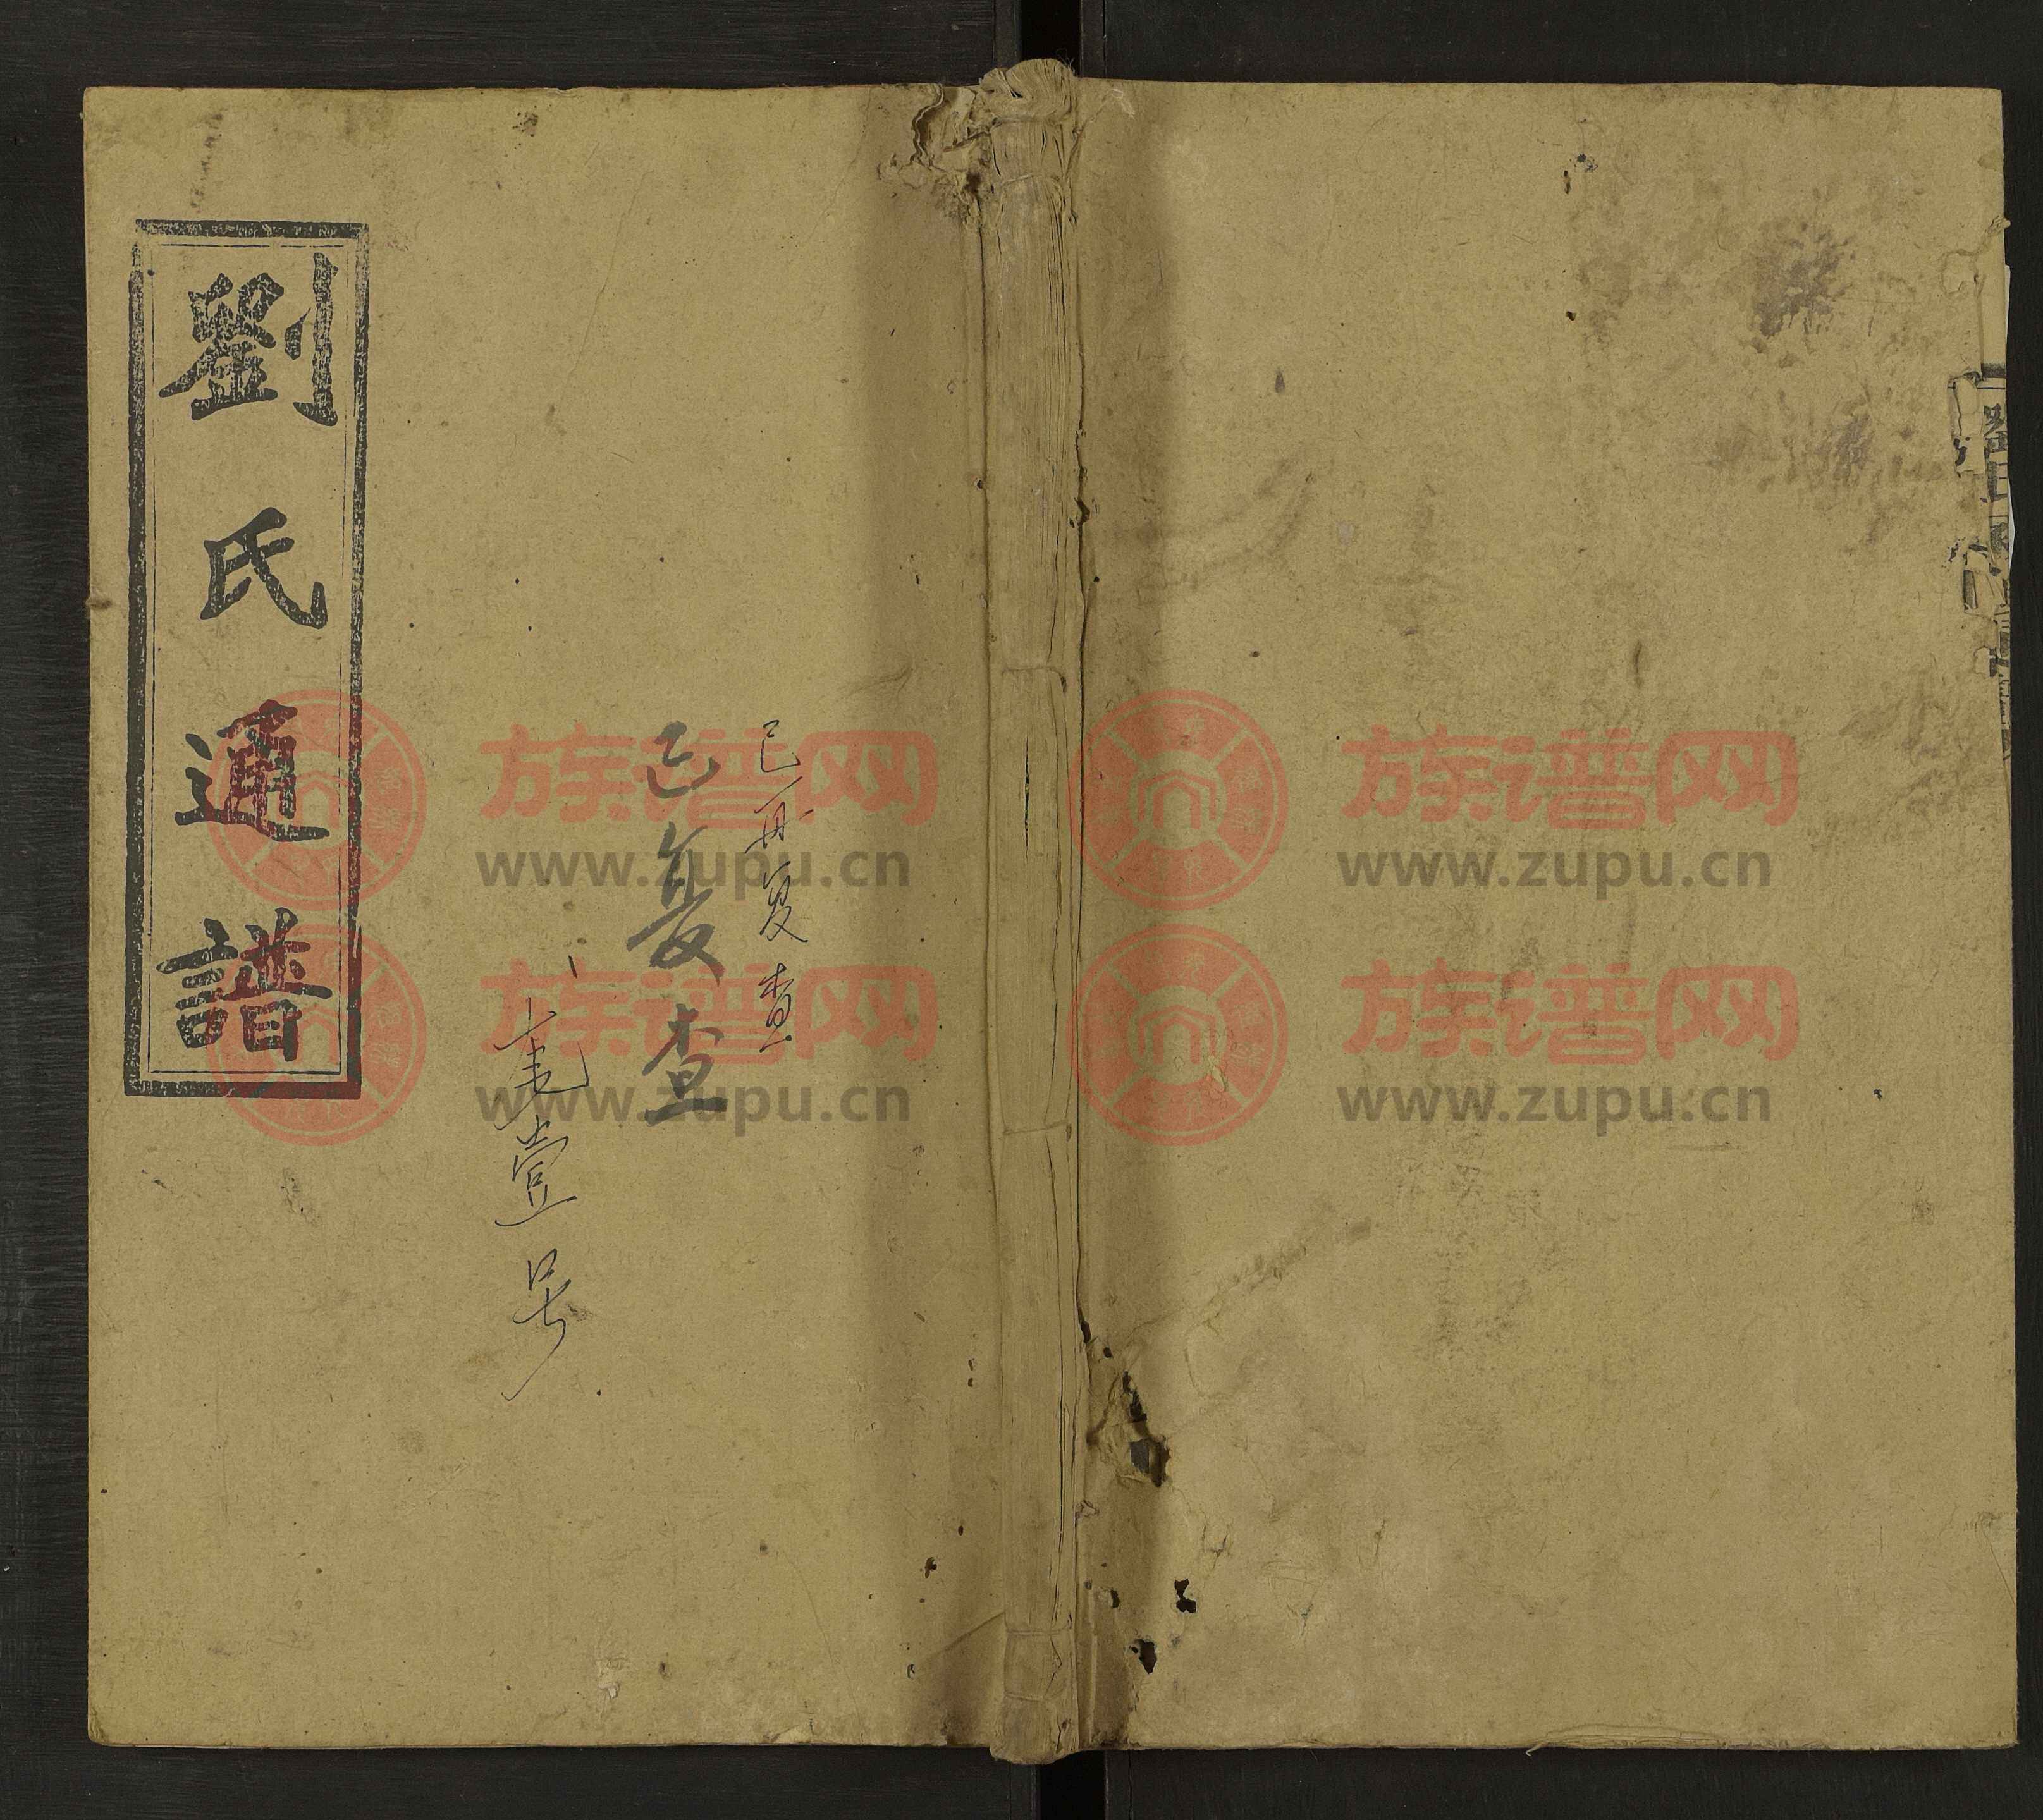 劉氏通譜
已再复查
已复查
壹号
族谱网
www.zupu.cn
族谱网
www.zupu.cn
族谱网
www.zupu.cn
族谱网
www.zupu.cn